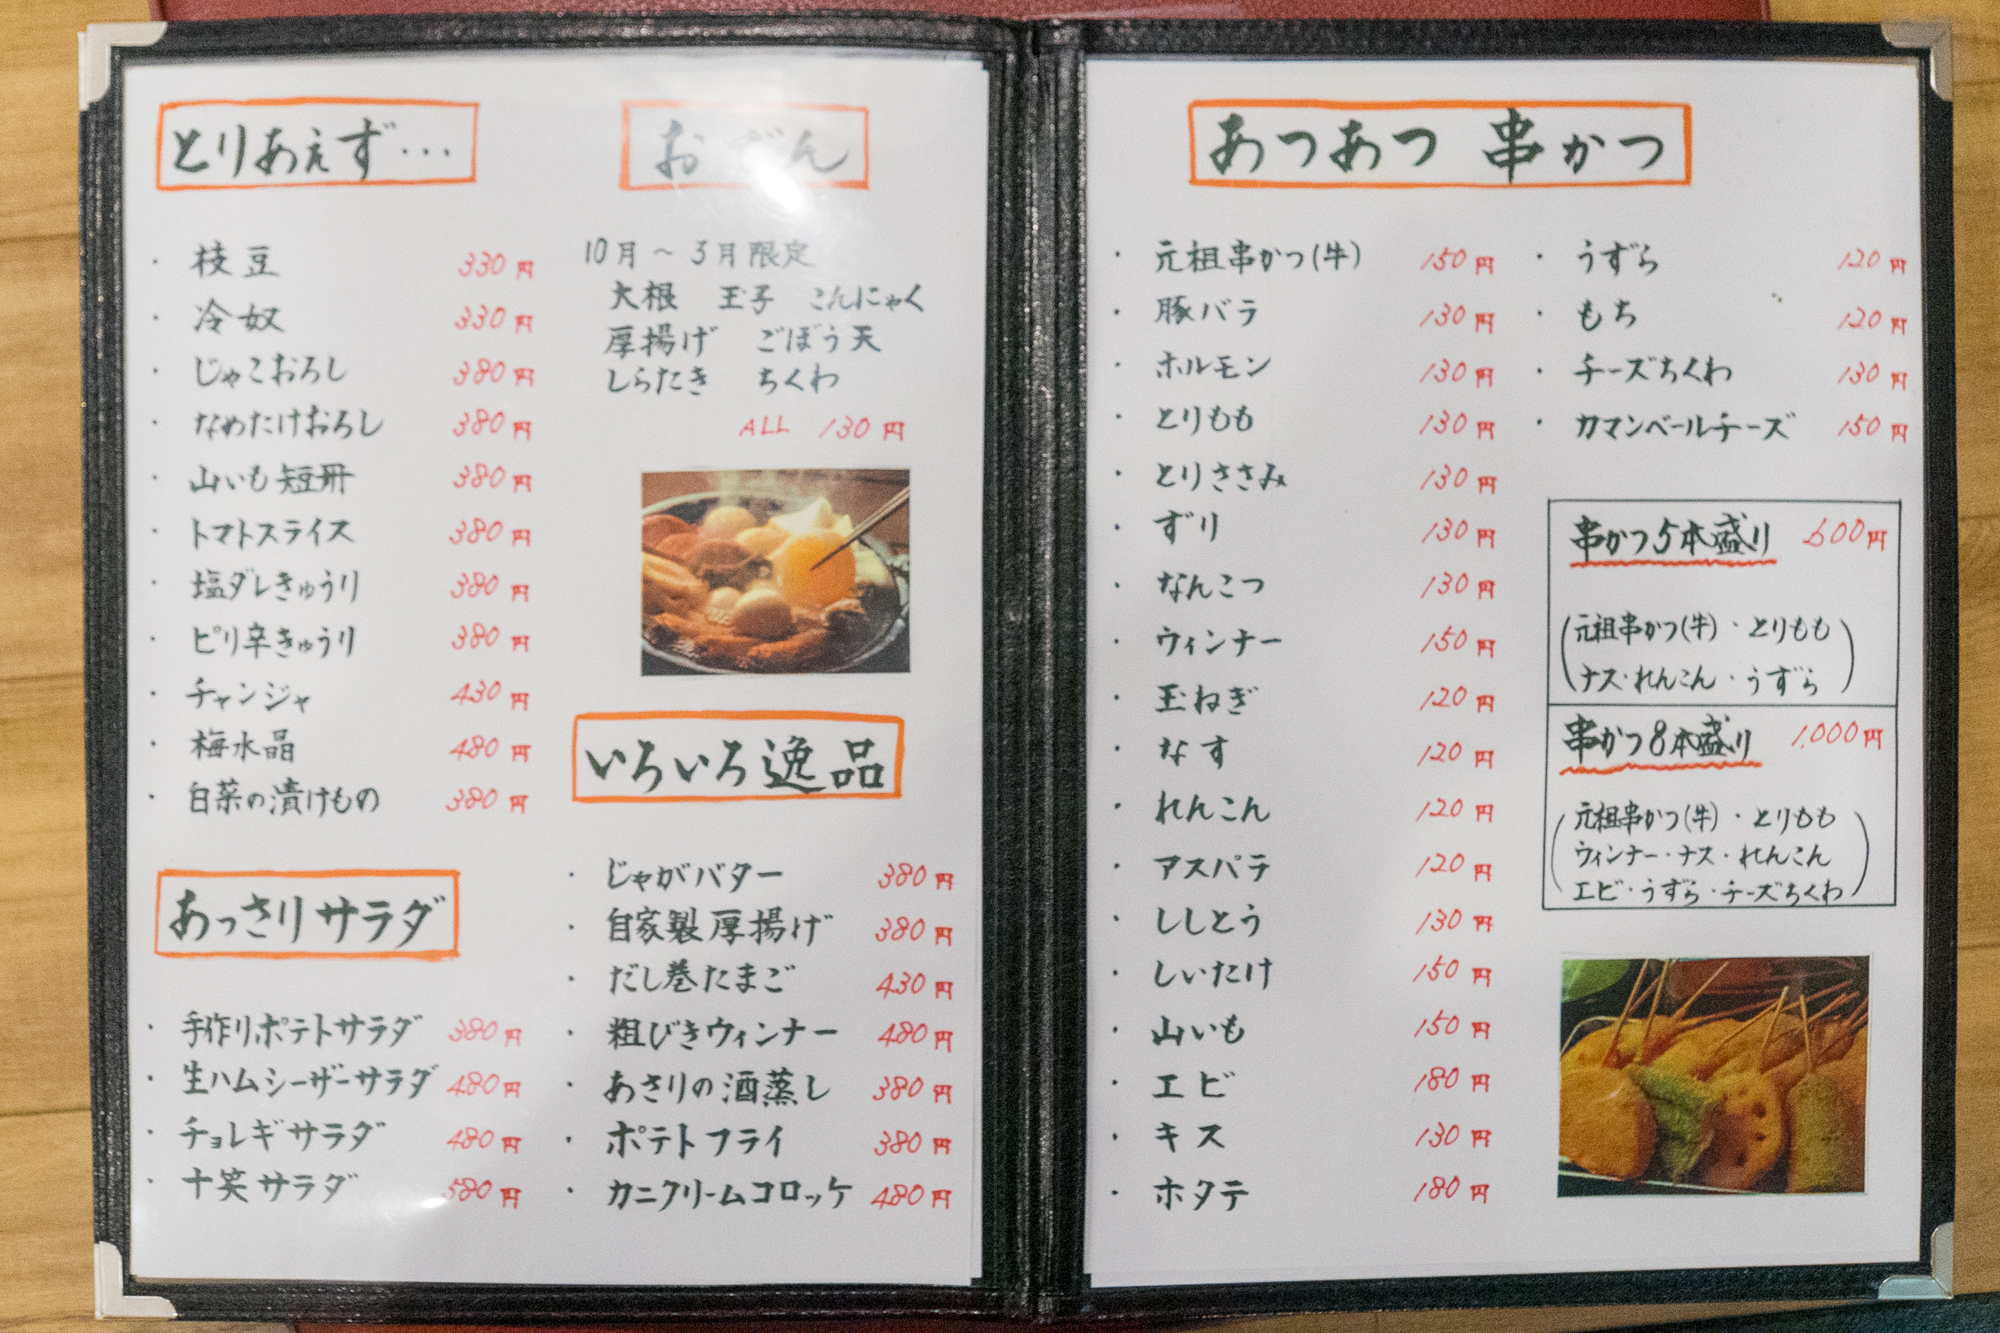 とりあえず…
・枝豆 330円
・冷奴 330円
・じゃこおろし 380円
・なめたけおろし 380円
・山いも短冊 380円
・トマトスライス 380円
・塩ダレきゅうり 380円
・ピリ辛きゅうり 380円
・チャンジャ 430円
・梅水晶 480円
・白菜の漬けもの 380円
あっさりサラダ
・手作りポテトサラダ 380円
・生ハムシーザーサラダ 480円
・チョレギサラダ 480円
・十笑サラダ 580円
おでん
10月～3月限定
大根 玉子 こんにゃく
厚揚げ ごぼう天
しらたき ちくわ
ALL 130円
いろいろ逸品
・じゃがバター 380円
・自家製厚揚げ 380円
・だし巻たまご 430円
・粗びきウィンナー 480円
・あさりの酒蒸し 380円
・ポテトフライ 380円
・カニクリームコロッケ 480円
あつあつ 串かつ
・元祖串かつ(牛) 150円
・豚バラ 130円
・ホルモン 130円
・とりもも 130円
・とりささみ 130円
・ずり 130円
・なんこつ 130円
・ウィンナー 150円
・玉ねぎ 120円
・なす 120円
・れんこん 120円
・アスパラ 120円
・ししとう 130円
・しいたけ 150円
・山いも 150円
・エビ 180円
・キス 130円
・ホタテ 180円
・うずら 120円
・もち 120円
・チーズちくわ 130円
・カマンベールチーズ 150円
串かつ5本盛り 600円
(元祖串かつ(牛)・とりもも
ナス・れんこん・うずら)
串かつ8本盛り 1,000円
(元祖串かつ(牛)・とりもも
ウィンナー・ナス・れんこん
エビ・うずら・チーズちくわ)